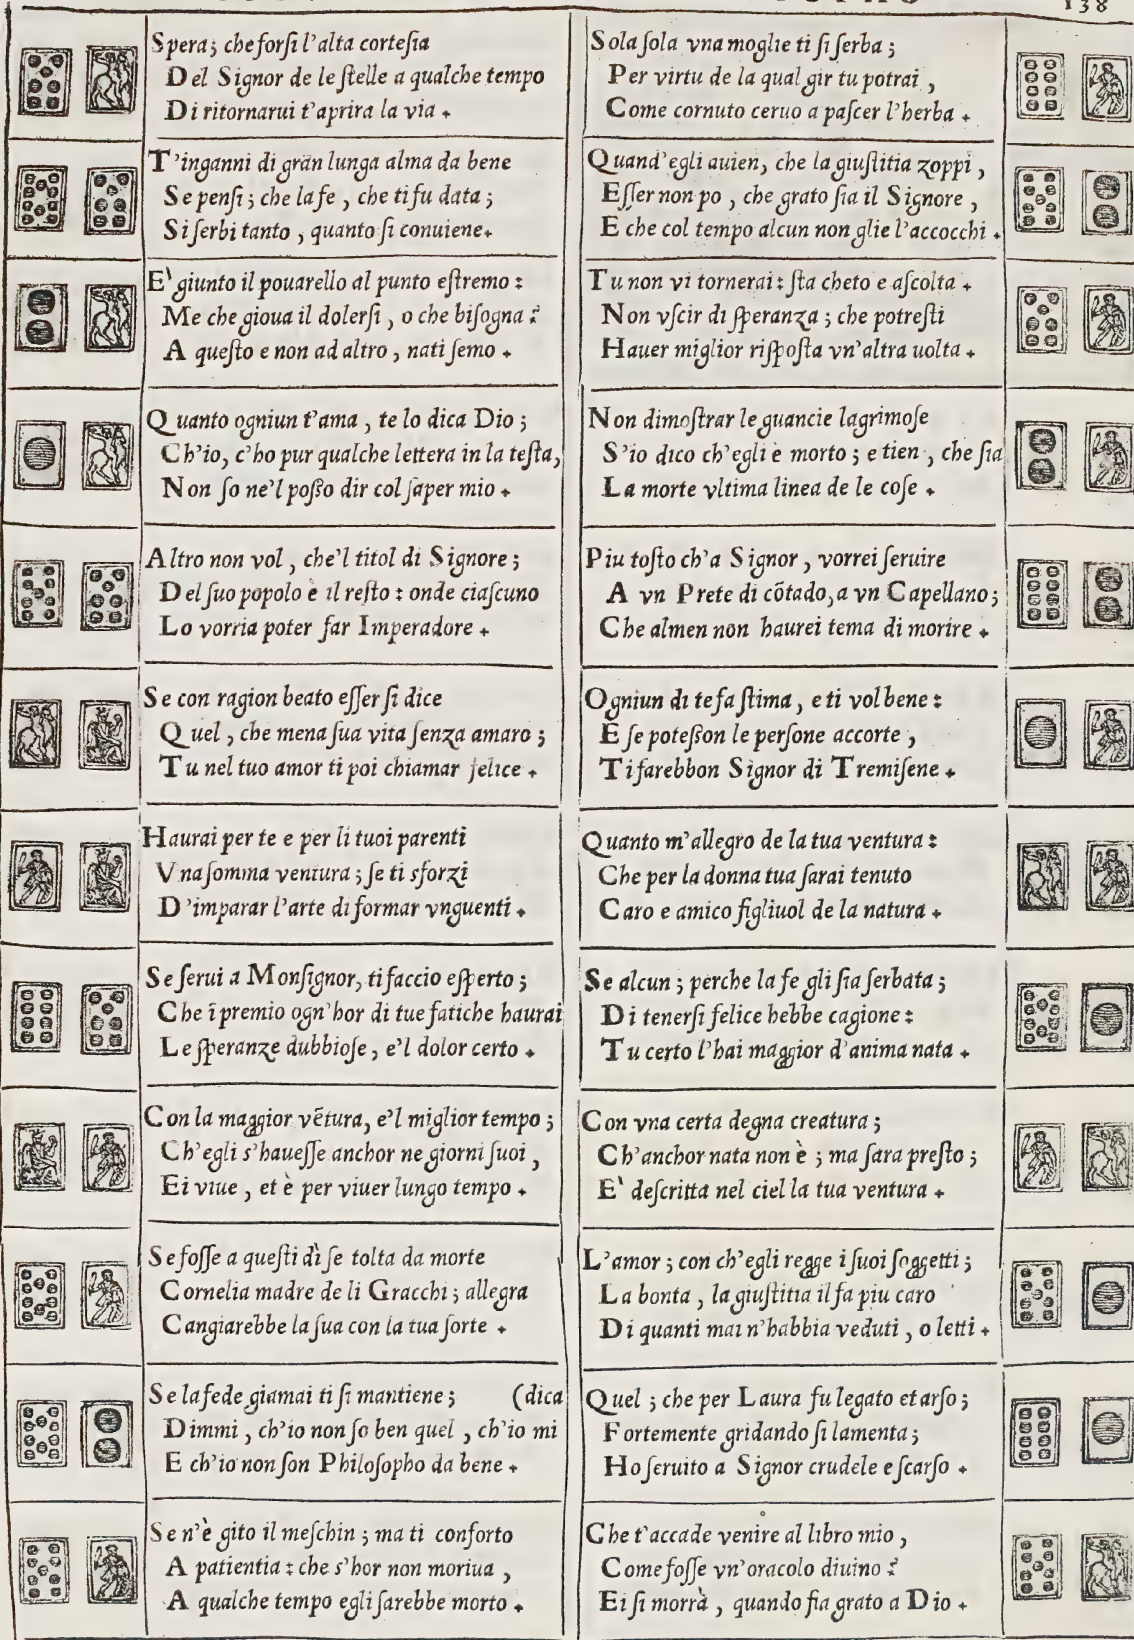 138
Spera; che forſi l'alta corteſia
Del Signor de le ſtelle a qualche tempo
Di ritornarui t'aprira la via.
T'inganni di gran lunga alma da bene
Se penſi; che la fe, che ti fu data;
Si ſerbi tanto, quanto ſi conuiene.
E' giunto il pouarello al punto eſtremo:
Me che gioua il dolerſi, o che biſogna?
A queſto e non ad altro, nati ſemo.
Quanto ogniun t'ama, te lo dica Dio;
Ch'io, c'ho pur qualche lettera in la teſta,
Non ſo ne'l poſſo dir col ſaper mio.
Altro non vol, che'l titol di Signore;
Del ſuo popolo è il reſto: onde ciaſcuno
Lo vorria poter far Imperadore.
Se con ragion beato eſſer ſi dice
Quel, che mena ſua vita ſenza amaro;
Tu nel tuo amor ti poi chiamar felice.
Haurai per te e per li tuoi parenti
Vna ſomma ventura; ſe ti sforzi
D'imparar l'arte di formar vnguenti.
Se ſerui a Monſignor, ti faccio eſperto;
Che ī premio ogn'hor di tue fatiche haurai
Le ſperanze dubbioſe, e'l dolor certo.
Con la maggior vētura, e'l miglior tempo;
Ch'egli s'haueſſe anchor ne giorni ſuoi,
Ei viue, et è per viuer lungo tempo.
Se foſſe a queſti dì ſe tolta da morte
Cornelia madre de li Gracchi; allegra
Cangiarebbe la ſua con la tua ſorte.
Se la fede giamai ti ſi mantiene; (dica
Dimmi, ch'io non ſo ben quel, ch'io mi
E ch'io non ſon Philoſopho da bene.
Se n'è gito il meſchin; ma ti conforto
A patientia: che s'hor non moriua,
A qualche tempo egli ſarebbe morto.
Sola ſola vna moglie ti ſi ſerba;
Per virtu de la qual gir tu potrai,
Come cornuto ceruo a paſcer l'herba.
Quand'egli auien, che la giuſtitia zoppi,
Eſſer non po, che grato ſia il Signore,
E che col tempo alcun non glie l'accocchi.
Tu non vi tornerai: ſta cheto e aſcolta.
Non vſcir di ſperanza; che potreſti
Hauer miglior riſpoſta vn'altra uolta.
Non dimoſtrar le guancie lagrimoſe
S'io dico ch'egli è morto; e tien, che ſia
La morte vltima linea de le coſe.
Piu toſto ch'a Signor, vorrei ſeruire
A vn Prete di cōtado, a vn Capellano;
Che almen non haurei tema di morire.
Ogniun di te fa ſtima, e ti vol bene:
E ſe poteſſon le perſone accorte,
Ti farebbon Signor di Tremiſene.
Quanto m'allegro de la tua ventura:
Che per la donna tua ſarai tenuto
Caro e amico figliuol de la natura.
Se alcun; perche la fe gli ſia ſerbata;
Di tenerſi felice hebbe cagione:
Tu certo l'hai maggior d'anima nata.
Con vna certa degna creatura;
Ch'anchor nata non è; ma ſara preſto;
E' deſcritta nel ciel la tua ventura.
L'amor; con ch'egli regge i ſuoi ſoggetti;
La bonta, la giuſtitia il fa piu caro
Di quanti mai n'habbia veduti, o letti.
Quel; che per Laura fu legato et arſo;
Fortemente gridando ſi lamenta;
Ho ſeruito a Signor crudele e ſcarſo.
Che t'accade venire al libro mio,
Come foſſe vn'oracolo diuino?
Ei ſi morrà, quando fia grato a Dio.